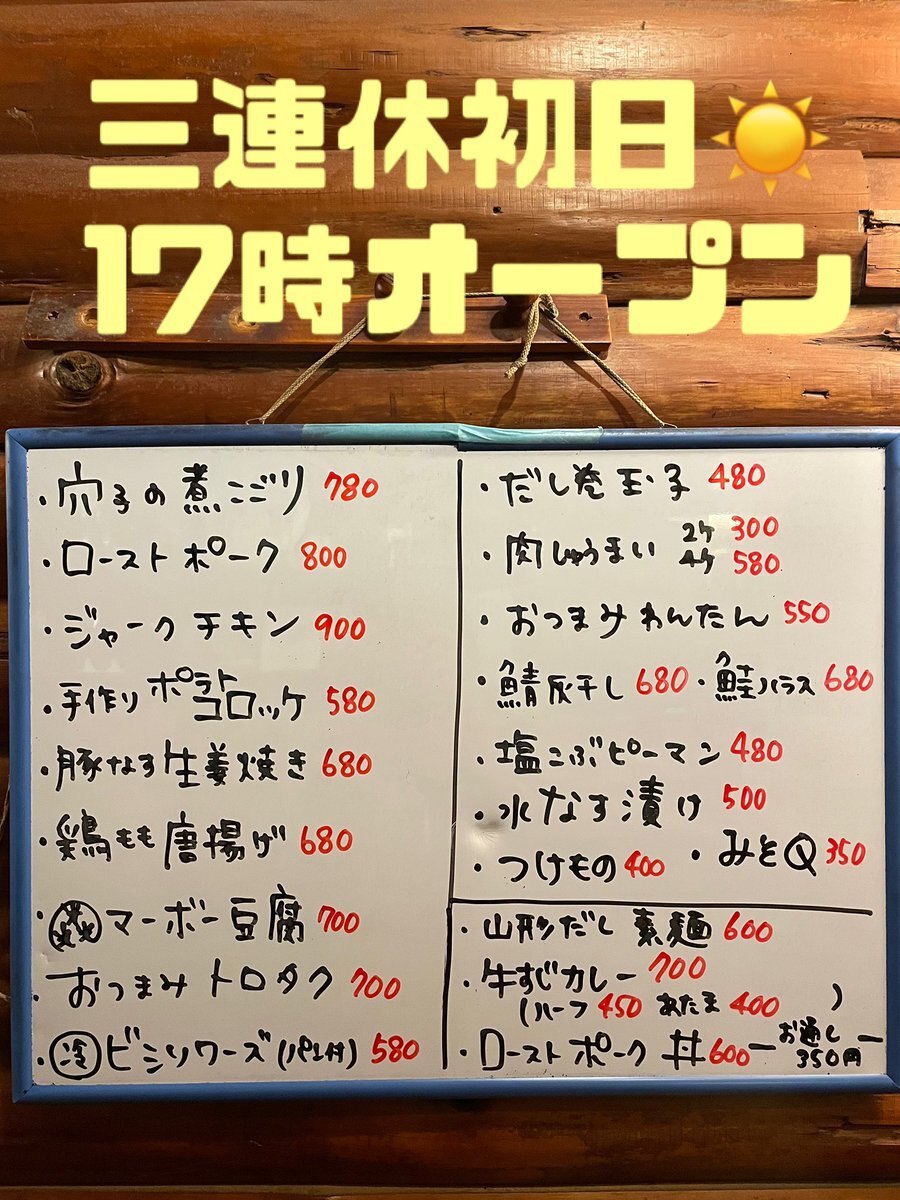 三連休初日☀️
17時オープン
・穴子の煮こごり 780
・ローストポーク 800
・ジャークチキン 900
・手作りポテトコロッケ 580
・豚なす生姜焼き 680
・鶏もも唐揚げ 680
・マーボー豆腐 700
・おつまみトロタク 700
・冷ビシソワーズ(パン付) 580
・だし巻玉子 480
・肉しゅうまい 2ケ 300
4ケ 580
・おつまみわんたん 550
・鯖灰干し 680 ・鮭ハラス 680
・塩こぶピーマン 480
・水なす漬け 500
・つけもの 400 ・みそQ 350
・山形だし素麺 600
・牛すじカレー 700
(ハーフ 450 あたま 400)
・ローストポーク丼 600
ーお通しー
350円